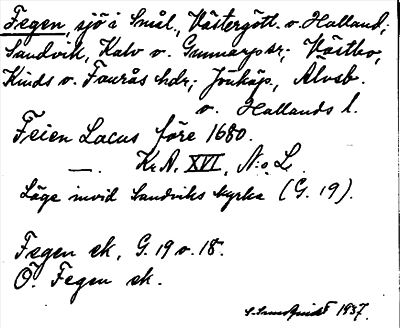 Fegen, sjö i Smål., Västergötl. o. Halland;
Sandvik, Kalv o. Gunnarps sr; Västbo,
Kinds o. Faurås hdr; Jönköp., Älvsb.
o. Hallands l.
Feien Lacus före 1680.
—. K.A. XVI, N:o L.
Läge invid Sandviks kyrka (G. 19).
Fegen ek, G. 19 o. 18.
Ö. Fegen ek.
S. Sundquist 1937.